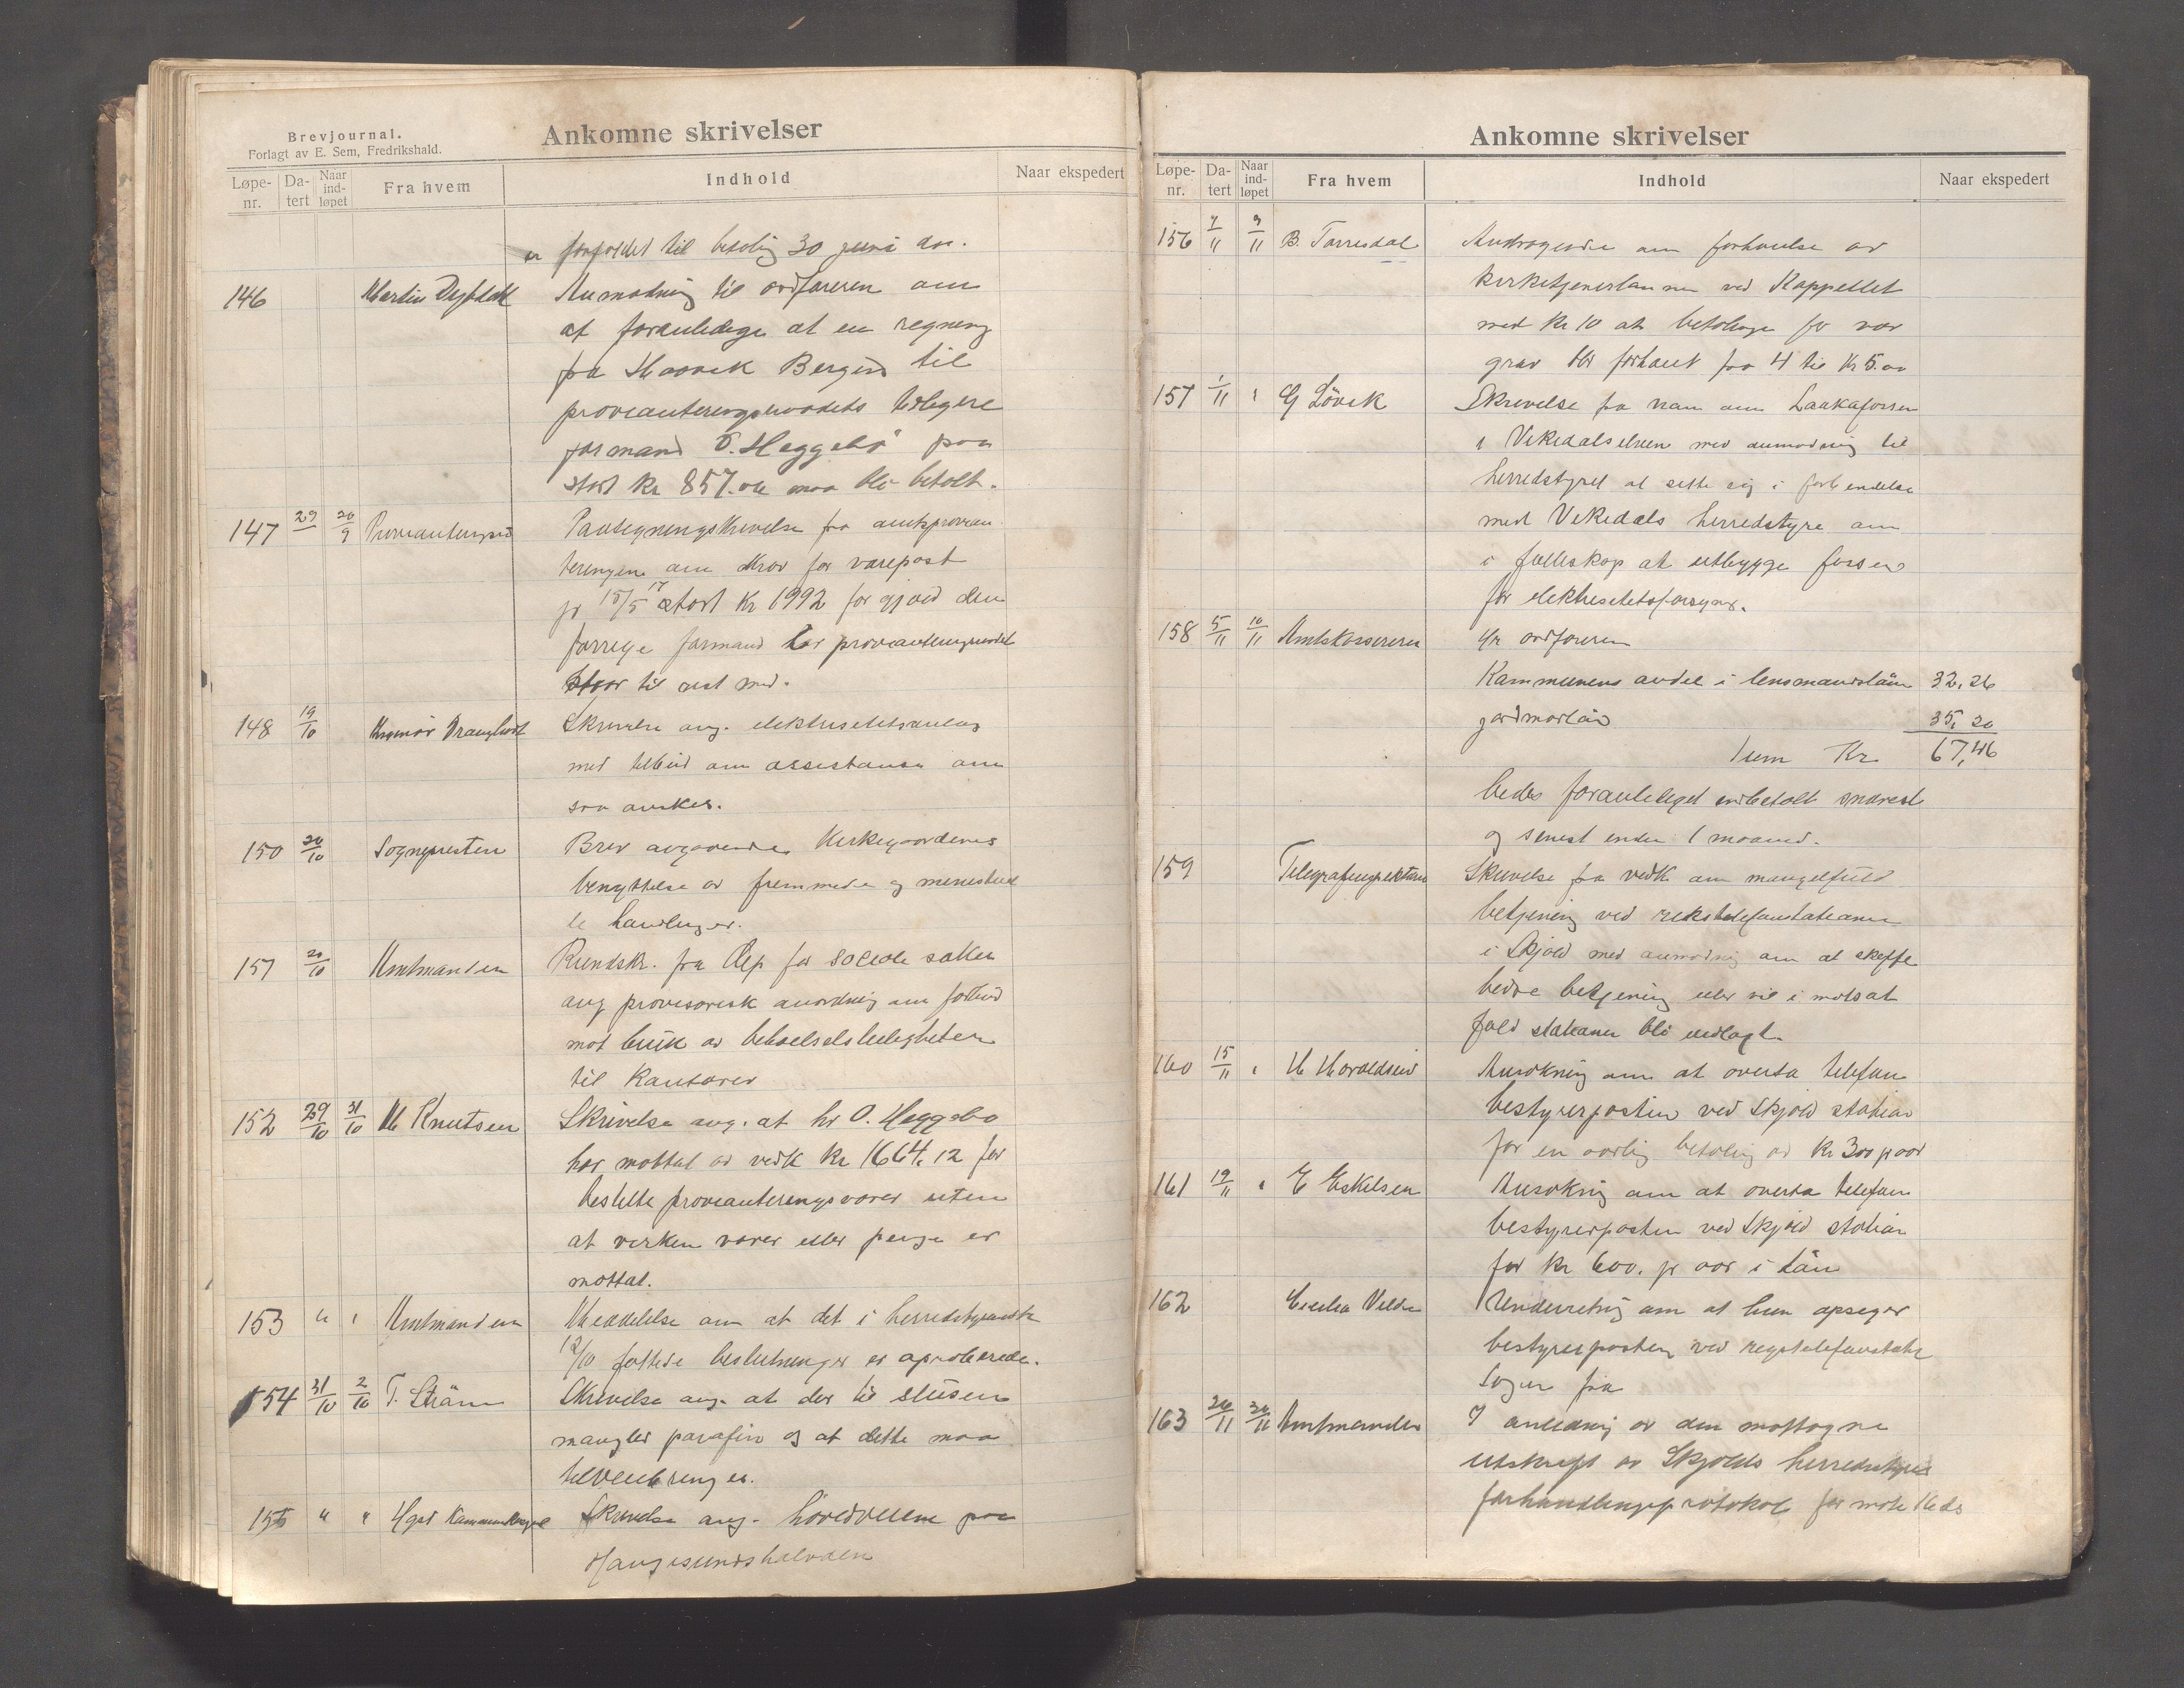 Brevjournal.
Forlagt av E. Sem, Fredrikshald.
Ankomne skrivelser
Løpe-nr. Da-tert Naar ind-løpet Fra hvem Indhold Naar ekspedert
er forfaldet til betaling 30 juni
146 Martin Anmodning til ordføreren om
at foranledige at en regning
fra Bergen til
provianteringsraadets tidligere
formand O. Heggebö paa
stort kr 857. maa bli betalt.
147 29 20/9 Provianteringsraad Paategningskrivelse fra amtsprovian
teringen om krav for varepost
pr 15/5 17 stort Kr 1992 for gjæld den
forrige formand for provianteringsraadet
staar til rest med.
148 19/10 Skrivelse ang. elektrisitetsanlæg
med tilbud om assistanse om
saa ønskes.
150 20/10 Sognepresten Brev angaaende Kirkegaardenes
benyttelse av fremmede og
le handlinger.
151 20/10 Amtmanden Rundskr. fra Dep for sociale saker
ang provisorisk anordning om forbud
mot bruk av beboelsesleiligheter
til Kontorer
152 29/10 31/10 M Knutsen Skrivelse ang. at hr O. Heggebø
har mottat av vedk kr 1664,12 for
bestilte provianteringsvarer uten
at verken varer eller penge er
mottat.
153 " " Amtmanden Meddelelse om at det i herredstyremøte
12/10 fattede beslutninger er aprobrede.
154 31/10 2/10 T. Skrivelse ang. at der til slusen
mangler parafin og at dette maa
tilveiebringes.
155 " " Skrivelse ang. hovedveiene paa
Haugesundshalvøen
Ankomne skrivelser
Løpe-nr. Da-tert Naar ind-løpet Fra hvem Indhold Naar ekspedert
156 7/11 9/11 B. Torresdal Andragende om forhøielse av
kirketjenerlønnen ved Kappellet
med kr 10 at betalinger for vor
grav blir forhøiet fra 4 til kr 5.00
157 1/11 " G Lövik Skrivelse fra ham om Laakafossen
i Vikedalselven med anmodning til
herredstyret at sette sig i forbindelse
med Vikedals herredstyre om
i fælleskap at utbygge fossen
for elektrisitetsforsyning.
158 5/11 10/11 Amtskassereren hr ordføreren
Kommunens andel i lensmandslön 32,26
jordmorlön 35,20
Sum Kr 67,46
bedes foranlediget indbetalt snarest
og senest inden 1 maaned.
159 Telegrafinspektøren Skrivelse fra vedk om mangelfuld
betjening ved rikstelefonstationen
i Skjold med anmodning om at skaffe
bedre betjening eller vil i motsat
fald stationen bli nedlagt.
160 15/11 " H Haraldseid Ansøkning om at overta telefon
bestyrerposten ved Skjold station
for en aarlig betaling av Kr 300 pr aar
161 19/11 " E Eskilsen Ansøkning om at overta telefon
bestyrerposten ved Skjold station
for kr 600. pr aar i lön
162 Underretning om at hun opsiger
bestyrerposten ved rigstelefonstats
fra
163 26/11 30/11 Amtmanden I anledning av den mottagne
utskrift av Skjolds herredstyres
forhandlingsprotokol for møte 16 ds